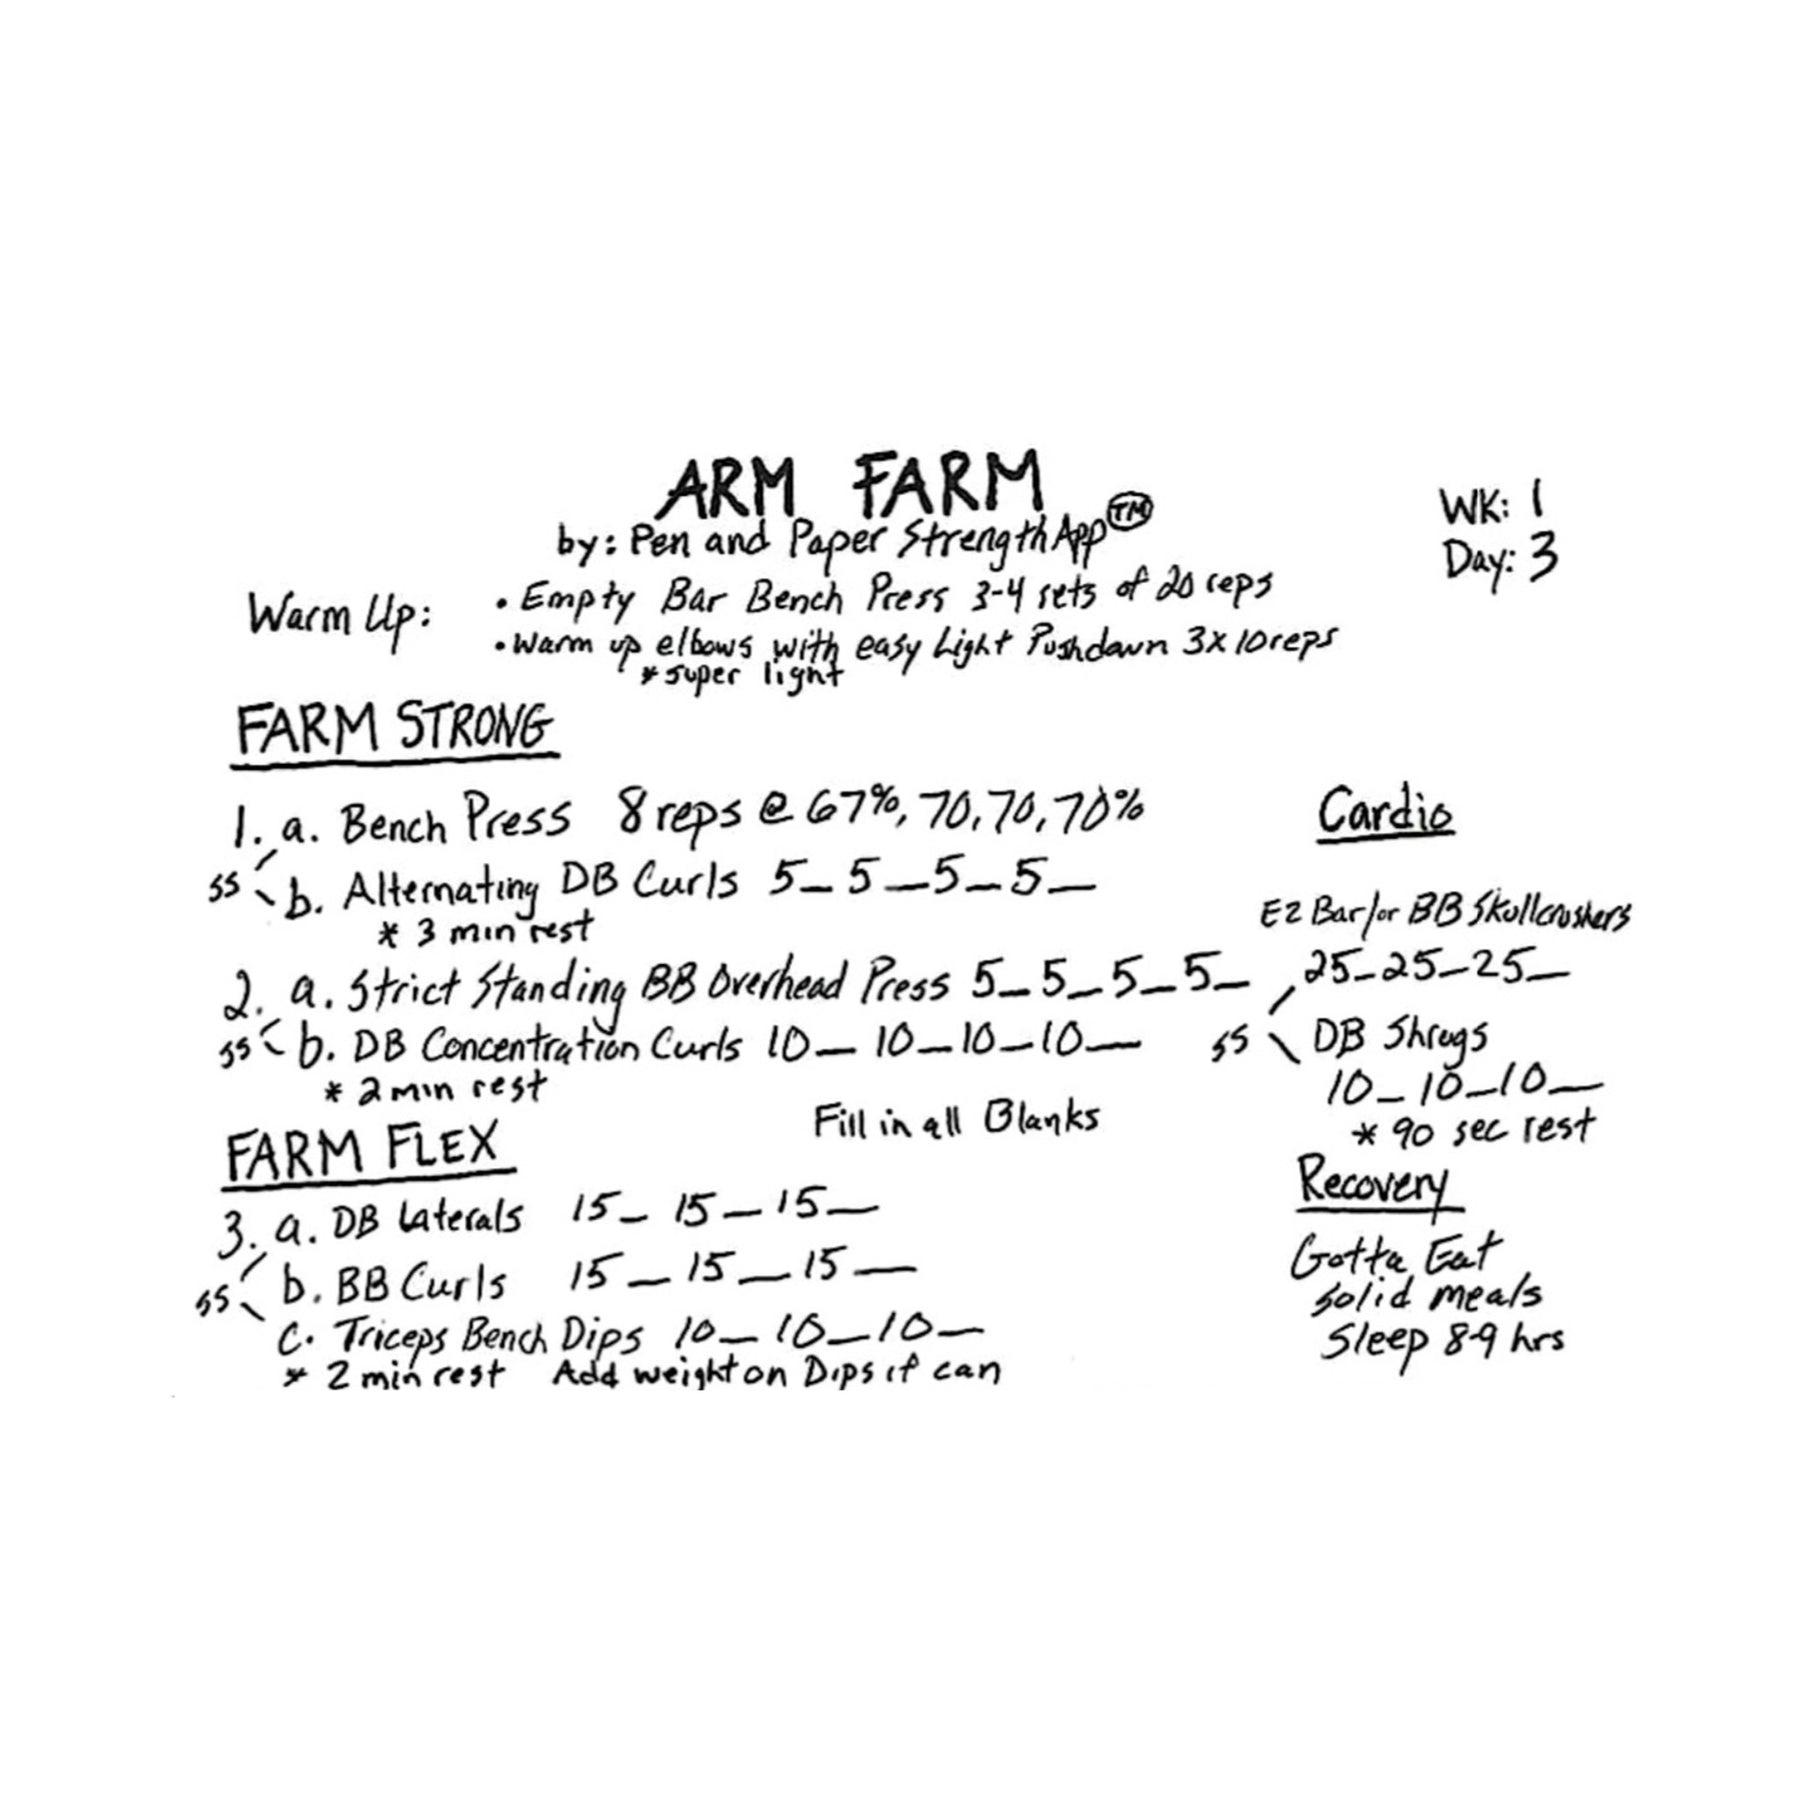 ARM FARM
by: Pen and Paper Strength App TM
WK: 1
Day: 3
Warm Up: • Empty Bar Bench Press 3-4 sets of 20 reps
• Warm up elbows with easy Light Pushdown 3x10 reps
* super light
FARM STRONG
1. a. Bench Press 8 reps @ 67%, 70, 70, 70%
ss b. Alternating DB Curls 5_ 5_ 5_ 5_
* 3 min rest
2. a. Strict Standing BB Overhead Press 5_ 5_ 5_ 5_
ss b. DB Concentration Curls 10_ 10_ 10_ 10_
* 2 min rest
Fill in all Blanks
FARM FLEX
3. a. DB Laterals 15_ 15_ 15_
ss b. BB Curls 15_ 15_ 15_
c. Triceps Bench Dips 10_ 10_ 10_
* 2 min rest Add weight on Dips if can
Cardio
EZ Bar/or BB Skullcrushers
25_ 25_ 25_
ss DB Shrugs
10_ 10_ 10_
* 90 sec rest
Recovery
Gotta Eat
solid meals
Sleep 8-9 hrs